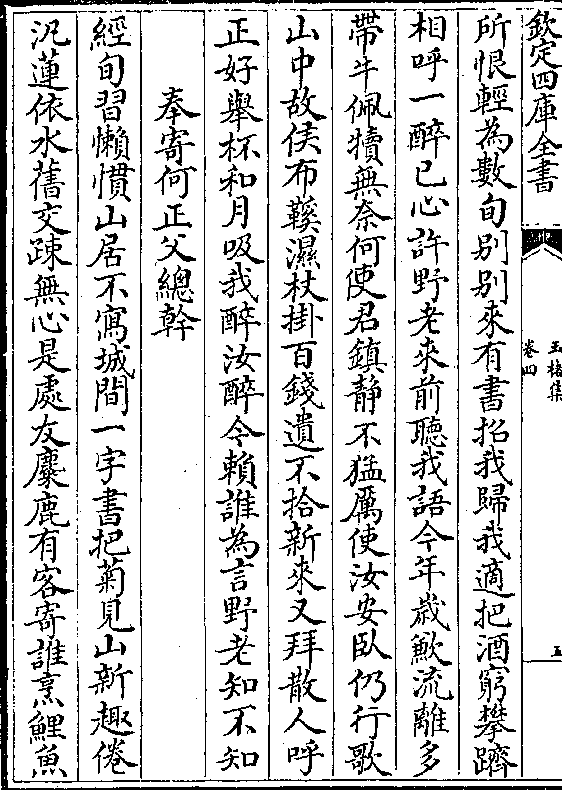 欽定四庫全書
玉楮集
卷四
五
所恨輕為數旬别别來有書招我歸我適把酒窮攀躋
相呼一醉已心許野老來前聽我語今年歲歉流離多
帶牛佩犢無奈何使君鎮静不猛厲使汝安臥仍行歌
山中故侯布韈濕杖掛百錢遺不拾新來又拜散人呼
正好舉杯和月吸我醉汝醉令賴誰為言野老知不知
奉寄何正父總幹
經旬習懶慣山居不寫城間一字書把菊見山新趣倦
汎蓮依水舊交踈無心是處友麋鹿有客寄誰烹鯉魚